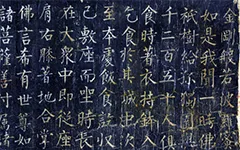 金剛般若波羅蜜
如是我聞一時佛
祇樹給孤獨園
千二百五十人
食時着衣持鉢入
乞食於其城中次
至本處飯食訖收
已敷座而坐時長
在大衆中即從座
肩右膝着地合掌
佛言希有世尊如
諸菩薩善付囑諸